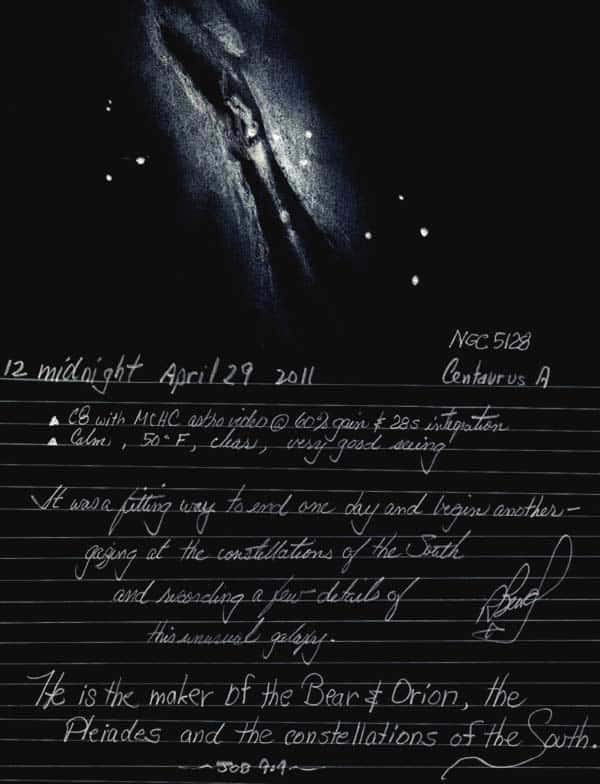 NGC 5128
12 midnight April 29 2011 Centaurus A
▲ C8 with MCHC astrovideo @ 60% gain & 28s integration
▲ Calm, 50° F, clear, very good seeing
It was a fitting way to end one day and begin another-
gazing at the constellations of the South
and recording a few details of
this unusual galaxy.
He is the maker of the Bear & Orion, the
Pleiades and the constellations of the South.
~JOB 9:9~